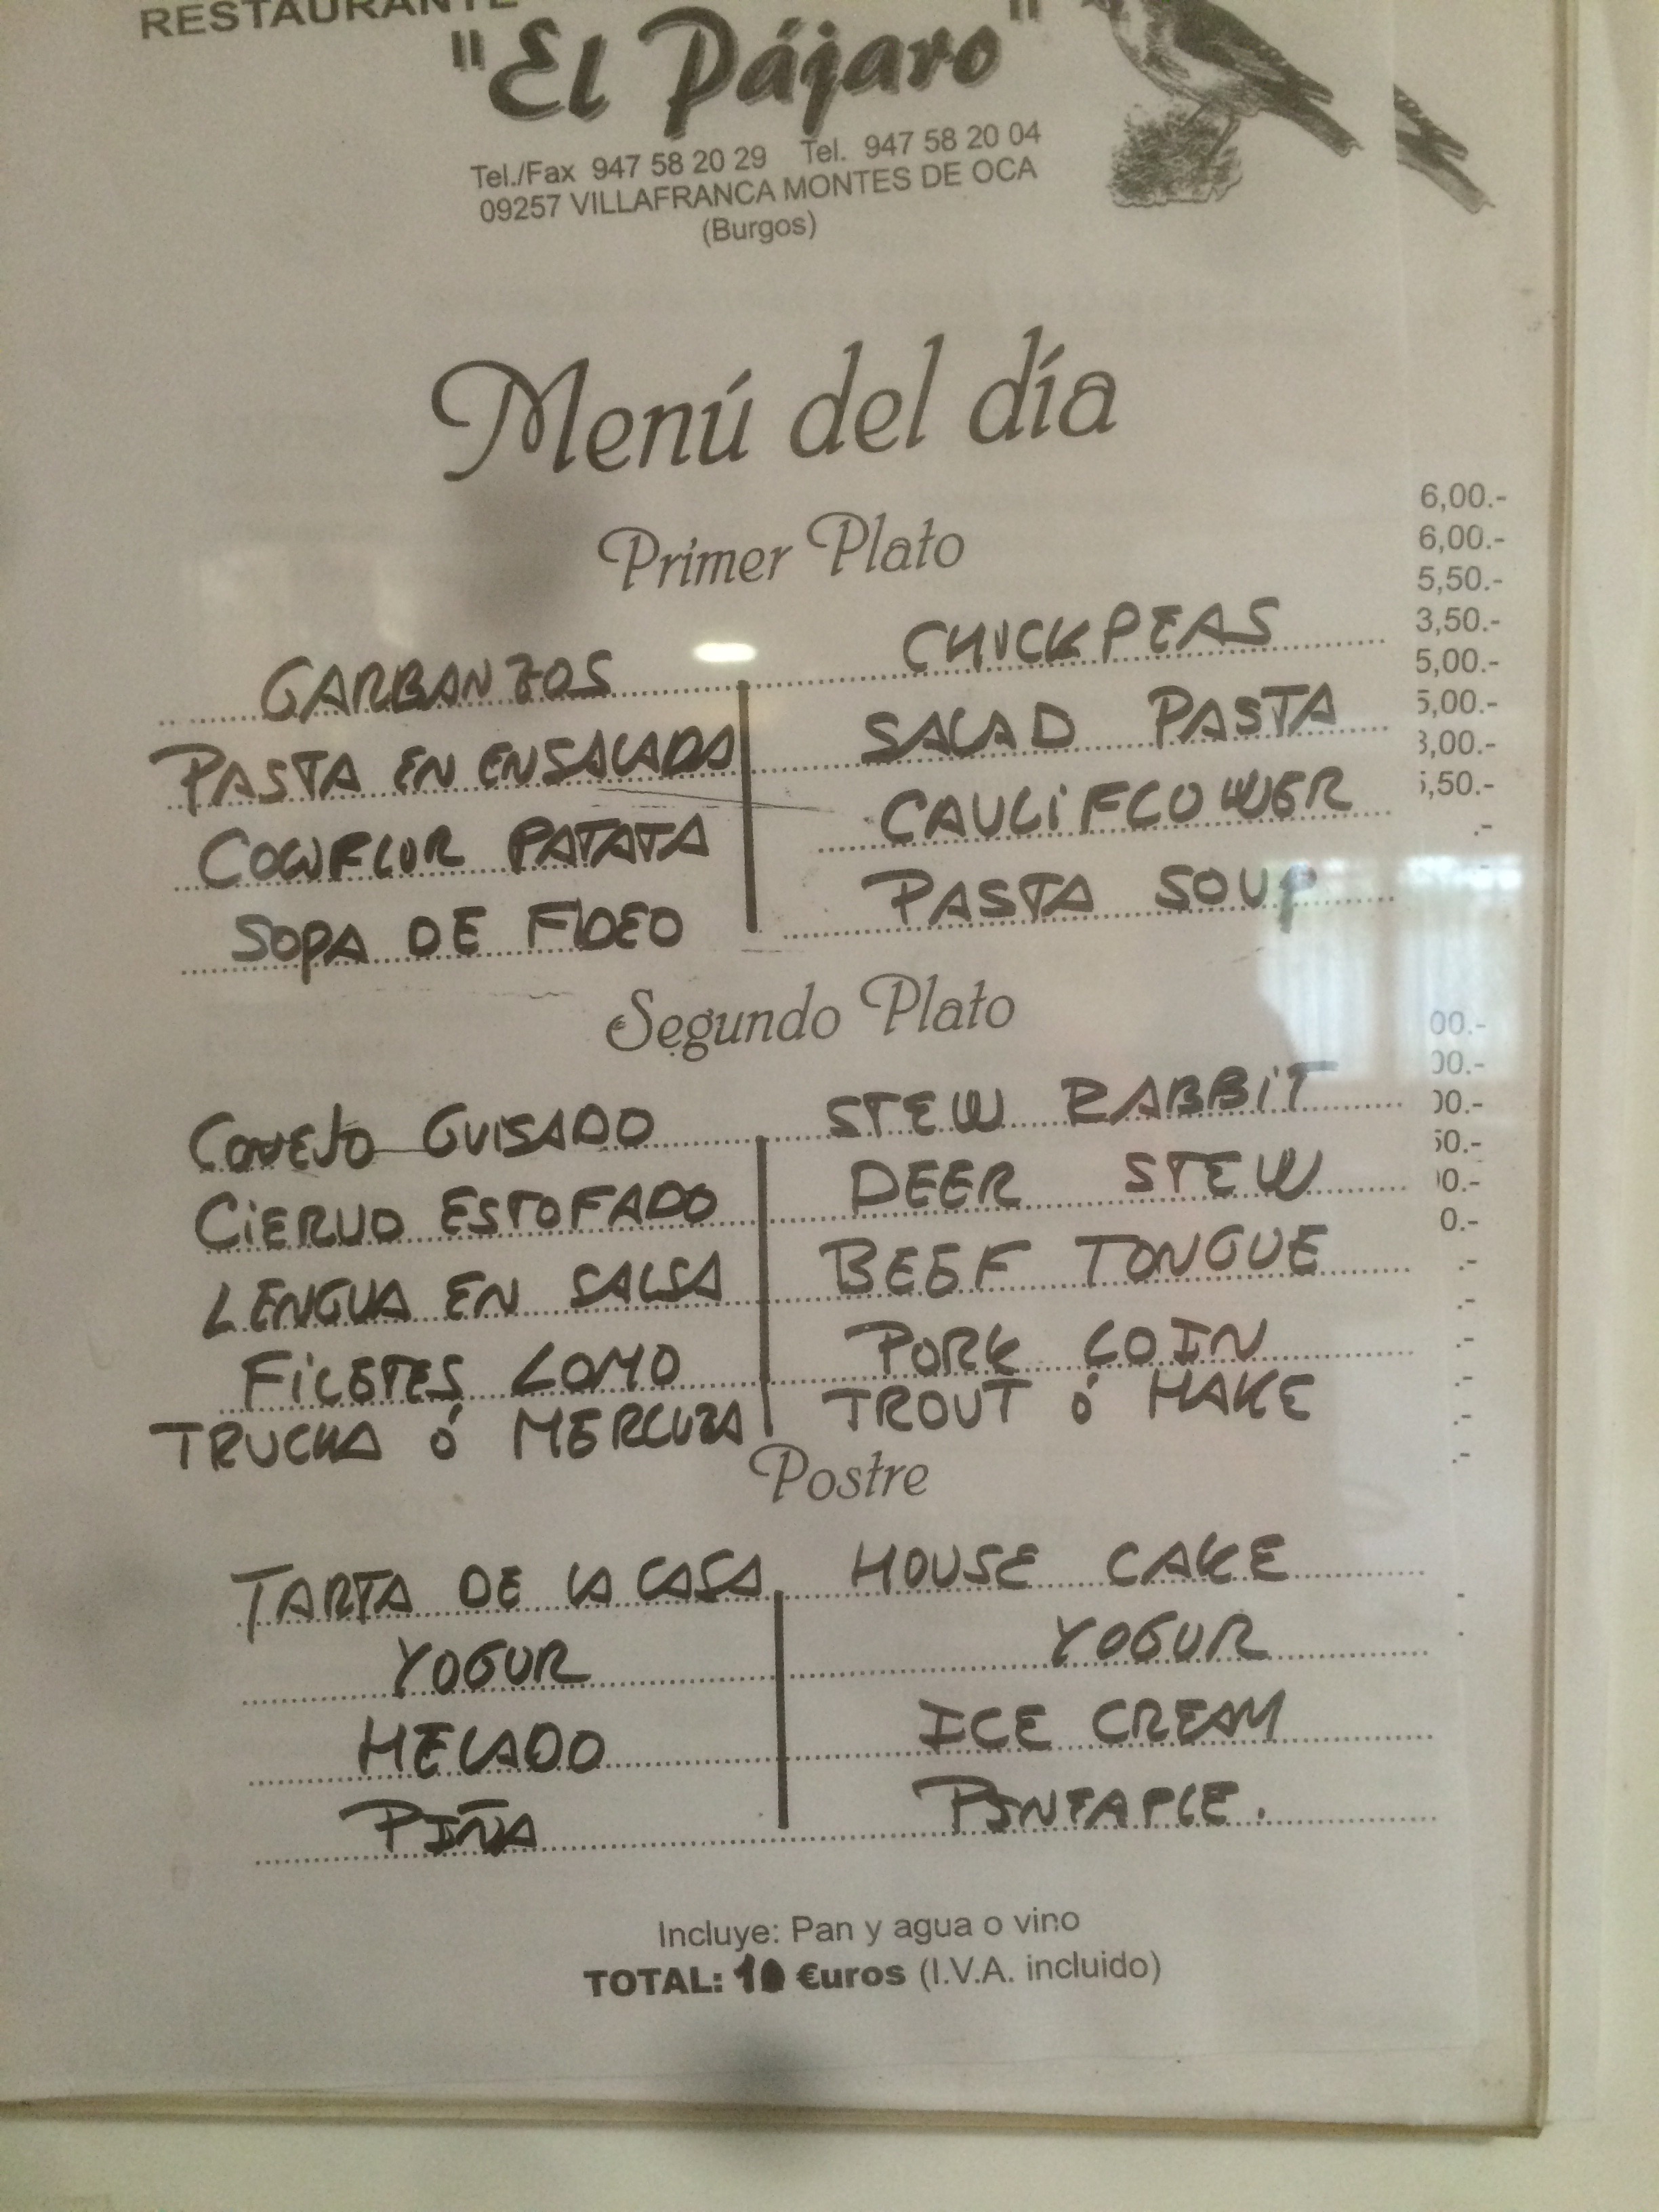 RESTAURANTE
"El Pájaro"
Tel./Fax 947 58 20 29 Tel. 947 58 20 04
09257 VILLAFRANCA MONTES DE OCA
(Burgos)
Menú del día
Primer Plato
GARBANZOS CHICKPEAS
PASTA EN ENSALADA SALAD PASTA
COWFLOR PATATA CAULIFLOWER
SOPA DE FIDEO PASTA SOUP
Segundo Plato
CONEJO GUISADO STEW RABBIT
CIERVO ESTOFADO DEER STEW
LENGUA EN SALSA BEEF TONGUE
FILETES LOMO PORK LOIN
TRUCHA ó MERLUZA TROUT ó HAKE
Postre
TARTA DE LA CASA HOUSE CAKE
YOGUR YOGUR
HELADO ICE CREAM
PIÑA PINEAPLE.
Incluye: Pan y agua o vino
TOTAL: 10 €uros (I.V.A. incluido)
6,00.-
6,00.-
5,50.-
3,50.-
5,00.-
5,00.-
3,00.-
,50.-
.-
00.-
00.-
00.-
50.-
0.-
0.-
.-
.-
.-
.-
.-
.-